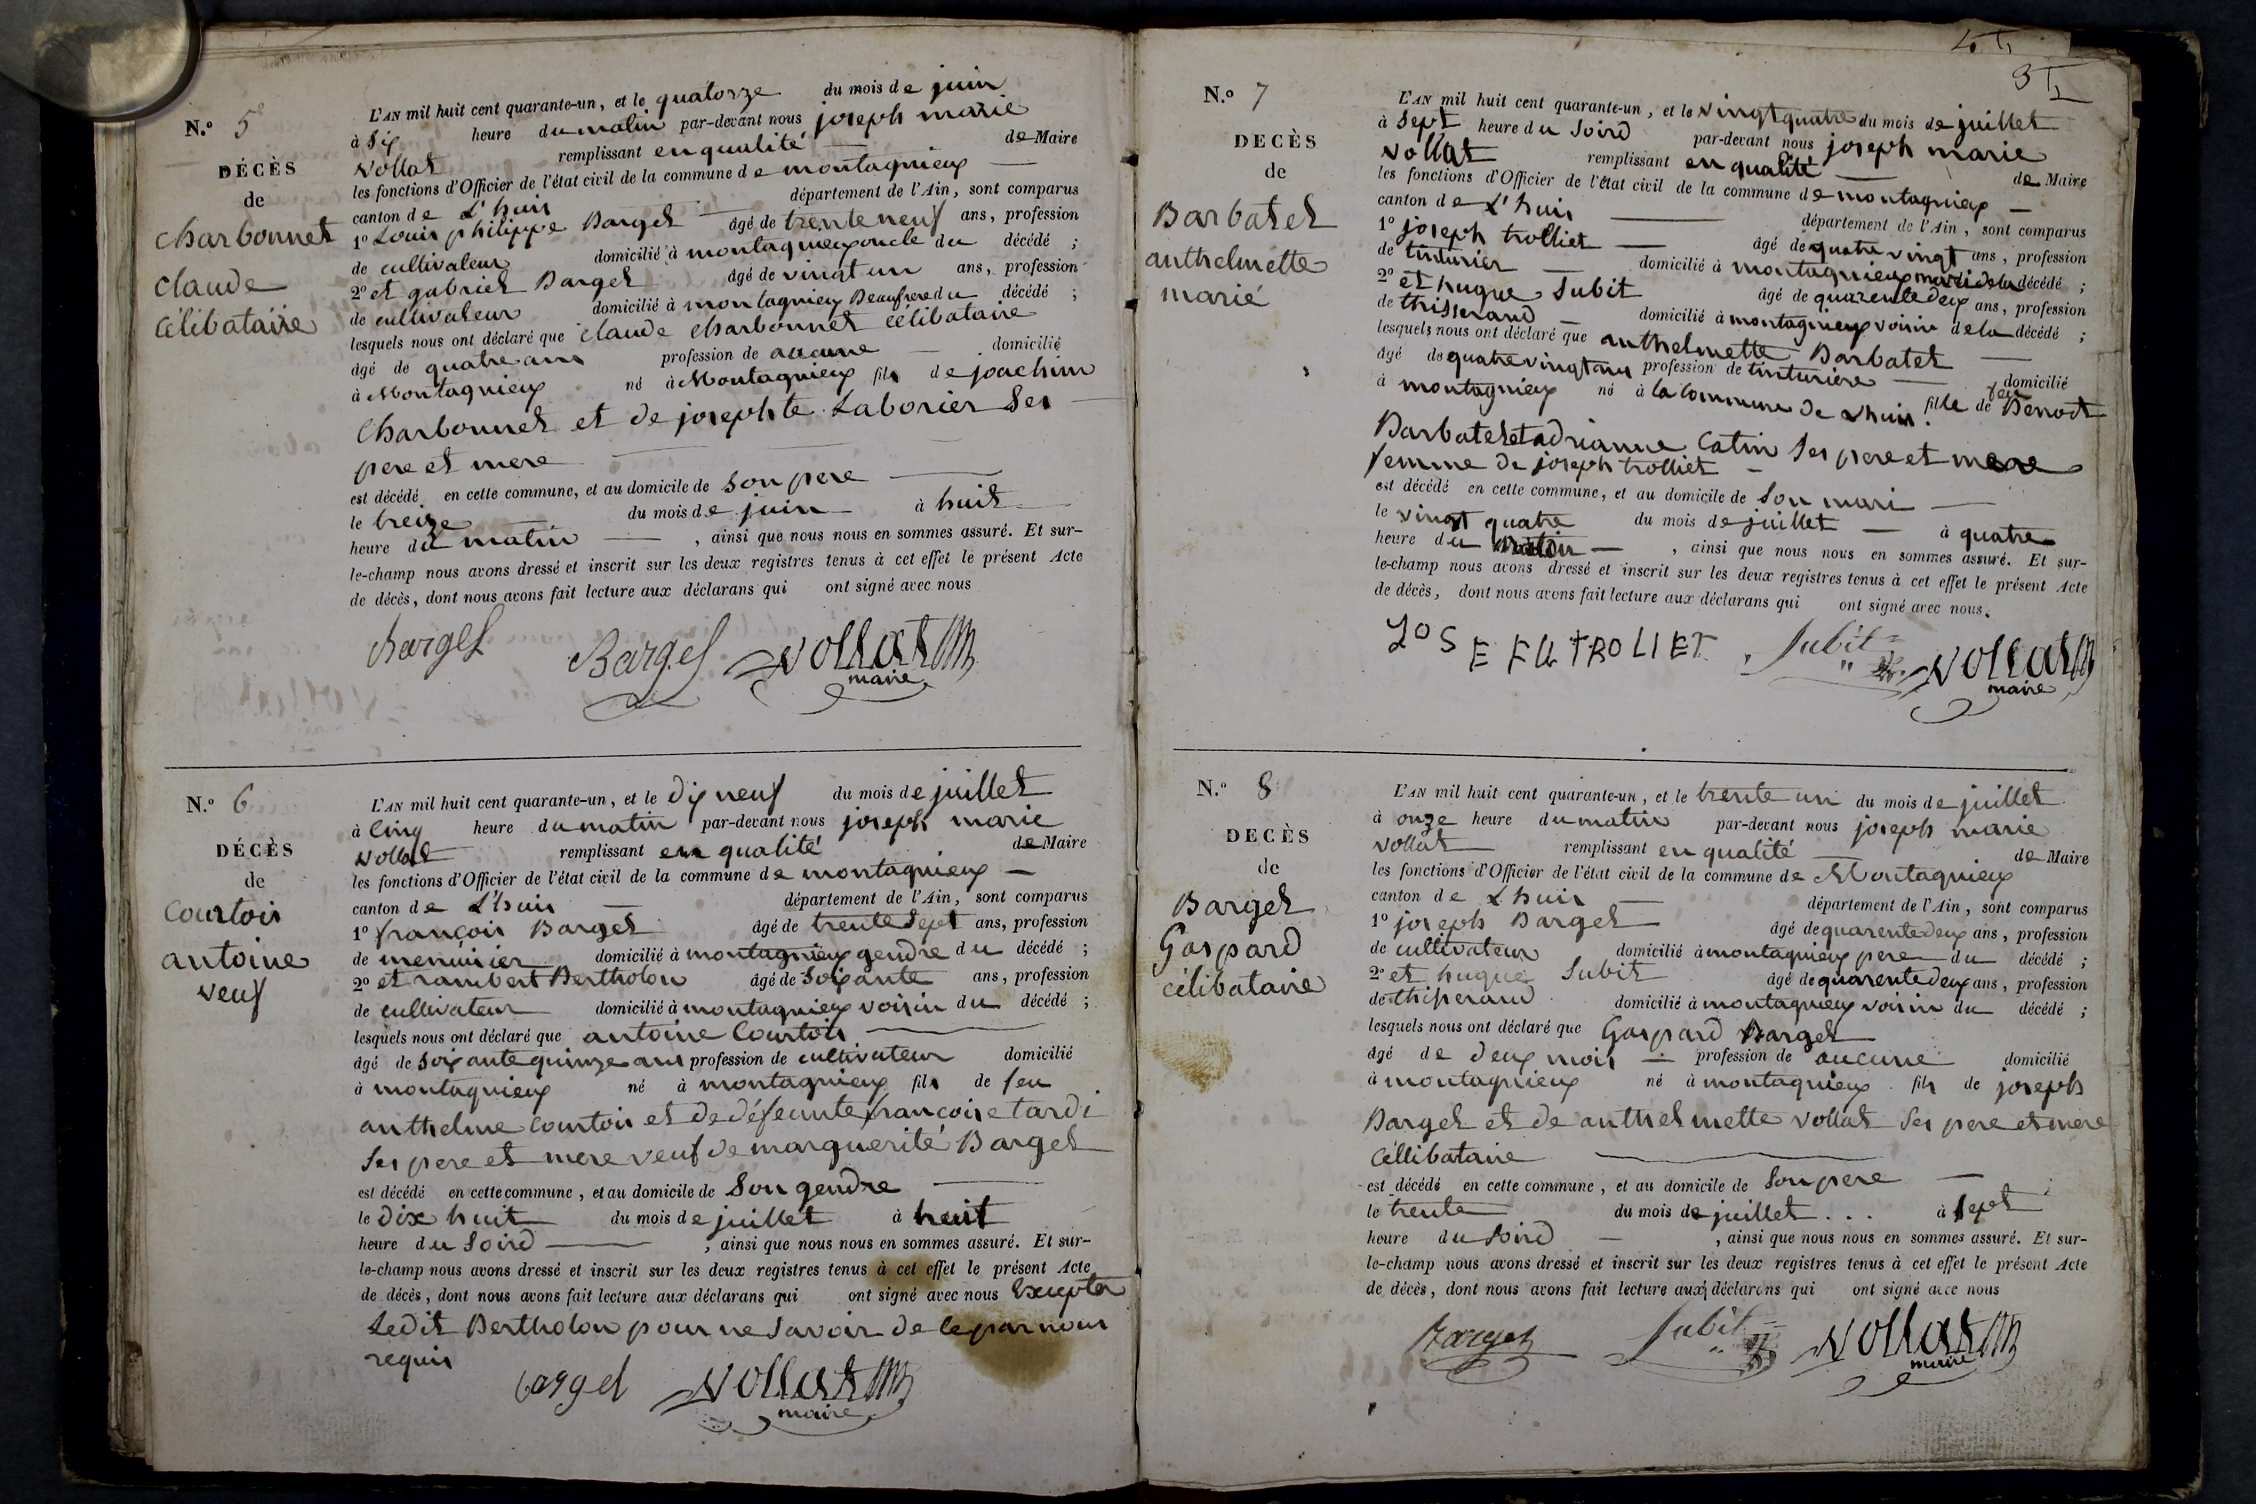 N.o 5
DÉCÈS
de
Charbonnet
claude
Célibataire
L'AN mil huit cent quarante-un, et le quatorze du mois de juin
à Six heure du matin par-devant nous joseph marie
Vollat remplissant en qualité de Maire
les fonctions d'Officier de l'état civil de la commune de montagnieux
canton de L'huis département de l'Ain, sont comparus
1o Louis philippe Barget âgé de trente neuf ans, profession
de cultivateur domicilié à montagnieux oncle du décédé ;
2o et gabriel Barget âgé de vingt un ans, profession
de cultivateur domicilié à montagnieux Beaufrere du décédé ;
lesquels nous ont déclaré que claude charbonnet célibataire
âgé de quatre ans profession de aucune domicilié
à Montagnieux né à Montagnieux fils de joachim
Charbonnet et de josephte Laborier Ses
pere et mere
est décédé en cette commune, et au domicile de Son pere
le treize du mois de juin à huit
heure du matin , ainsi que nous nous en sommes assuré. Et sur-
le-champ nous avons dressé et inscrit sur les deux registres tenus à cet effet le présent Acte
de décès, dont nous avons fait lecture aux déclarans qui ont signé avec nous
Barget Barget Vollat
maire
N.o 6
DÉCÈS
de
Courtois
antoine
veuf
L'AN mil huit cent quarante-un, et le dix neuf du mois de juillet
à Cinq heure du matin par-devant nous joseph marie
Vollat remplissant en qualité de Maire
les fonctions d'Officier de l'état civil de la commune de montagnieux
canton de L'huis département de l'Ain, sont comparus
1o françois Barget âgé de trente Sept ans, profession
de menuisier domicilié à montagnieux gendre du décédé ;
2o et rambert Bertholon âgé de Soixante ans, profession
de cultivateur domicilié à montagnieux voisin du décédé ;
lesquels nous ont déclaré que antoine Courtois
âgé de Soixante quinze ans profession de cultivateur domicilié
à montagnieux né à montagnieux fils de feu
anthelme Courtois et de défeunte françoise tardi
Ses pere et mere veuf de marguerité Barget
est décédé en cette commune, et au domicile de Son gendre
le dix huit du mois de juillet à huit
heure du Soird , ainsi que nous nous en sommes assuré. Et sur-
le-champ nous avons dressé et inscrit sur les deux registres tenus à cet effet le présent Acte
de décès, dont nous avons fait lecture aux déclarans qui ont signé avec nous Excepter
Ledit Bertholon pour ne Savoir de le par nous
requis
bargel Vollat
maire
N.o 7
DECÈS
de
Barbatet
anthelmette
marié
L'AN mil huit cent quarante-un, et le vingt quatre du mois de juillet
à Sept heure du Soird par-devant nous joseph marie
Vollat remplissant en qualité de Maire
les fonctions d'Officier de l'état civil de la commune de montagnieux
canton de L'huis département de l'Ain, sont comparus
1o joseph trolliet âgé de quatre vingt ans, profession
de tinturier domicilié à montagnieux mari de la décédé ;
2o et hugue Subit âgé de quarente deux ans, profession
de thisserand domicilié à montagnieux voisin de la décédé ;
lesquels nous ont déclaré que anthelmette Barbatet
âgé de quatre vingt ans profession de tinturiere domicilié
à montagnieux né à la Commune de Lhuis fille de feu Benoit
Barbatet et adrianne Catin Ses pere et mere
femme de joseph trolliet
est décédé en cette commune, et au domicile de Son mari
le vingt quatre du mois de juillet à quatre
heure du matin , ainsi que nous nous en sommes assuré. Et sur-
le-champ nous avons dressé et inscrit sur les deux registres tenus à cet effet le présent Acte
de décès, dont nous avons fait lecture aux déclarans qui ont signé avec nous.
TROLIET Subit Vollat
maire
N.o 8
DECÈS
de
Barget
Gaspard
célibataire
L'AN mil huit cent quarante-un, et le trente un du mois de juillet
à onze heure du matin par-devant nous joseph marie
Vollat remplissant en qualité de Maire
les fonctions d'Officier de l'état civil de la commune de Montagnieux
canton de Lhuis département de l'Ain, sont comparus
1o joseph Barget âgé de quarente deux ans, profession
de cultivateur domicilié à montagnieux pere du décédé ;
2o et hugue Subit âgé de quarente deux ans, profession
de thiserand domicilié à montagnieux voisin du décédé ;
lesquels nous ont déclaré que Gaspard Barget
âgé de deux mois profession de aucune domicilié
à montagnieux né à montagnieux fils de joseph
Barget et de anthelmette vollat Ses pere et mere
Céllibataire
est décédé en cette commune, et au domicile de Son pere
le trente du mois de juillet... à Sept
heure du Soird , ainsi que nous nous en sommes assuré. Et sur-
le-champ nous avons dressé et inscrit sur les deux registres tenus à cet effet le présent Acte
de décès, dont nous avons fait lecture aux déclarans qui ont signé avec nous
Barget Subit Vollat
maire